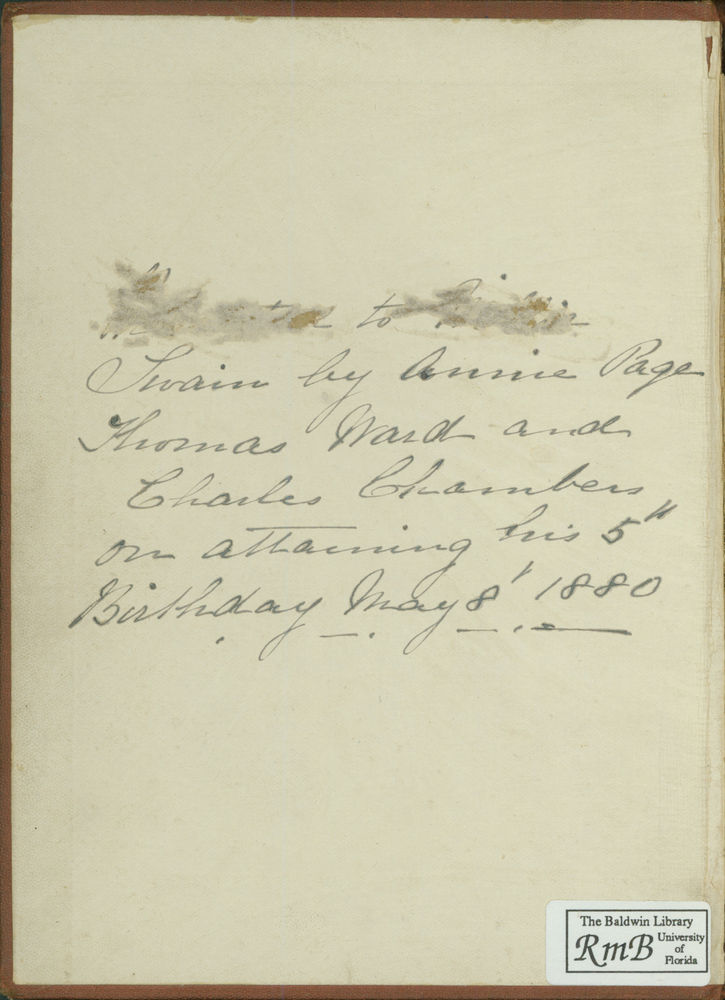 to
Swain by Annie Page
Thomas Ward and
Charles Chambers
on attaining his 5"
Birthday May 8' 1880
The Baldwin Library
RmB University
of
Florida